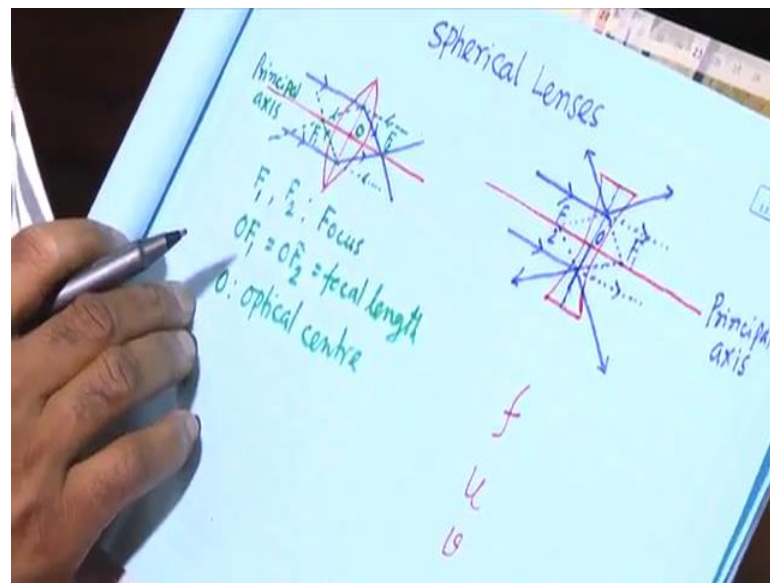 Spherical Lenses
Principal
axis
F₁
O
F₂
F₁, F₂: Focus
OF₁ = OF₂ = focal length
O: optical centre
F₂
O
F₁
Principal
axis
f
u
v